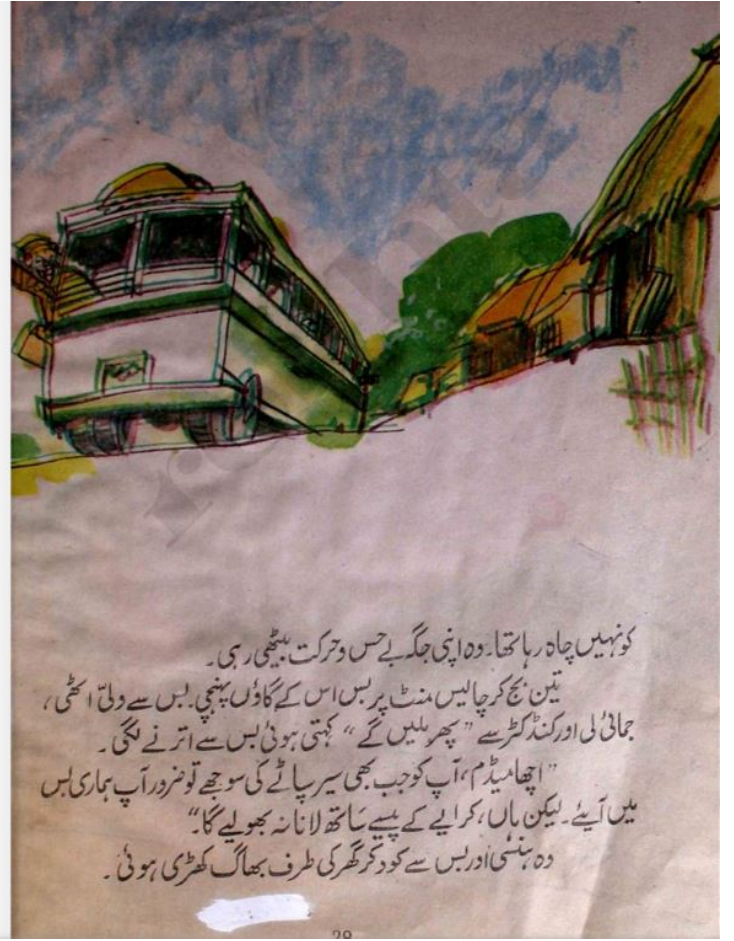 کو نہیں چاہ رہا تھا۔ وہ اپنی جگہ بے حس و حرکت بیٹھی رہی۔
تین بج کر چالیس منٹ پر بس اس کے گاؤں پہنچی۔ بس سے ولیّ اٹھی،
جمائی لی اور کنڈکٹر سے ”پھر ملیں گے“ کہتی ہوئی بس سے اترنے لگی۔
”اچھا میڈم، آپ کو جب بھی سیر سپاٹے کی سوجھے تو ضرور آپ ہماری بس
میں آیئے۔ لیکن ہاں، کرایے کے پیسے ساتھ لانا نہ بھولیے گا۔“
وہ ہنسی اور بس سے کود کر گھر کی طرف بھاگ کھڑی ہوئی۔